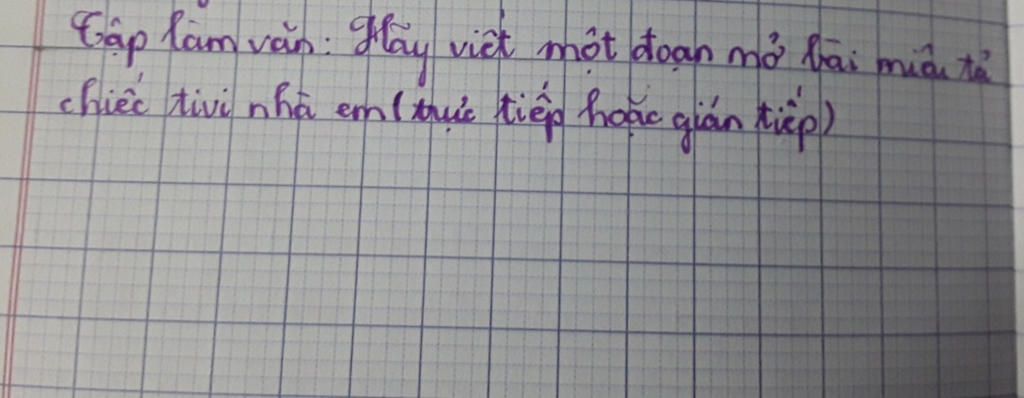 Tập làm văn: Hãy viết một đoạn mở bài miêu tả
chiếc tivi nhà em (trực tiếp hoặc gián tiếp)